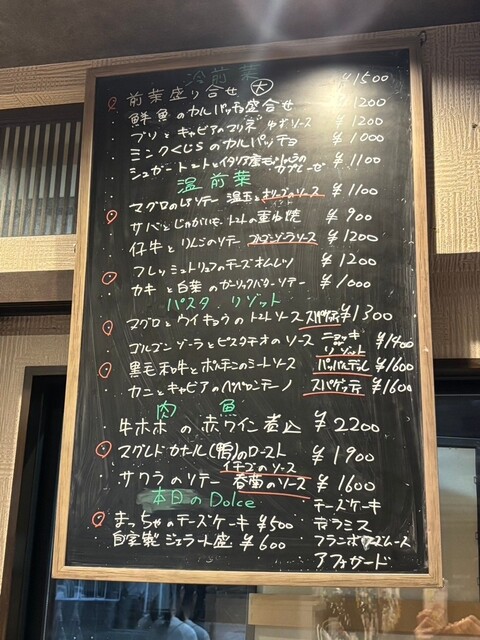 冷前菜
前菜盛り合せ 大 ¥1500
鮮魚のカルパッチョ盛合せ ¥1200
ブリとキャビアのマリネ ゆずソース ¥1200
ミンクくじらのカルパッチョ ¥1000
シュガートマトとイタリア産モッツァレラのカプレーゼ ¥1100
温前菜
マグロのほほソテー 温玉とオリーブのソース ¥1100
サバとじゃがいも、トマトの重ね焼 ¥900
仔牛とりんごのソテー ゴルゴンゾーラソース ¥1200
フレッシュトリュフのチーズオムレツ ¥1200
カキと白菜のガーリックバターソテー ¥1000
パスタ リゾット
マグロとウイキョウのトマトソース スパゲッティ ¥1300
ゴルゴンゾーラとピスタチオのソース ニョッキ リゾット ¥1400
黒毛和牛とポルチーニのミートソース パッパルデッレ ¥1600
カニとキャビアのペペロンチーノ スパゲッティ ¥1600
肉 魚
牛ホホの赤ワイン煮込 ¥2200
マグレドカナール(鴨)のロースト イチゴのソース ¥1900
サワラのソテー 春菊のソース ¥1600
本日のDolce
まっちゃのチーズケーキ ¥500
自家製ジェラート盛 ¥600
チーズケーキ
ティラミス
フランボワーズムース
アフォガード